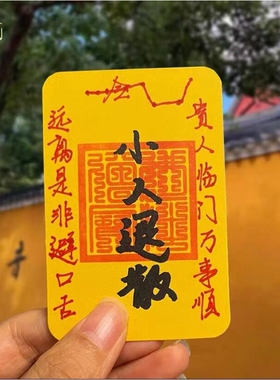 贵人临门万事顺
小人退散
远离是非避口舌